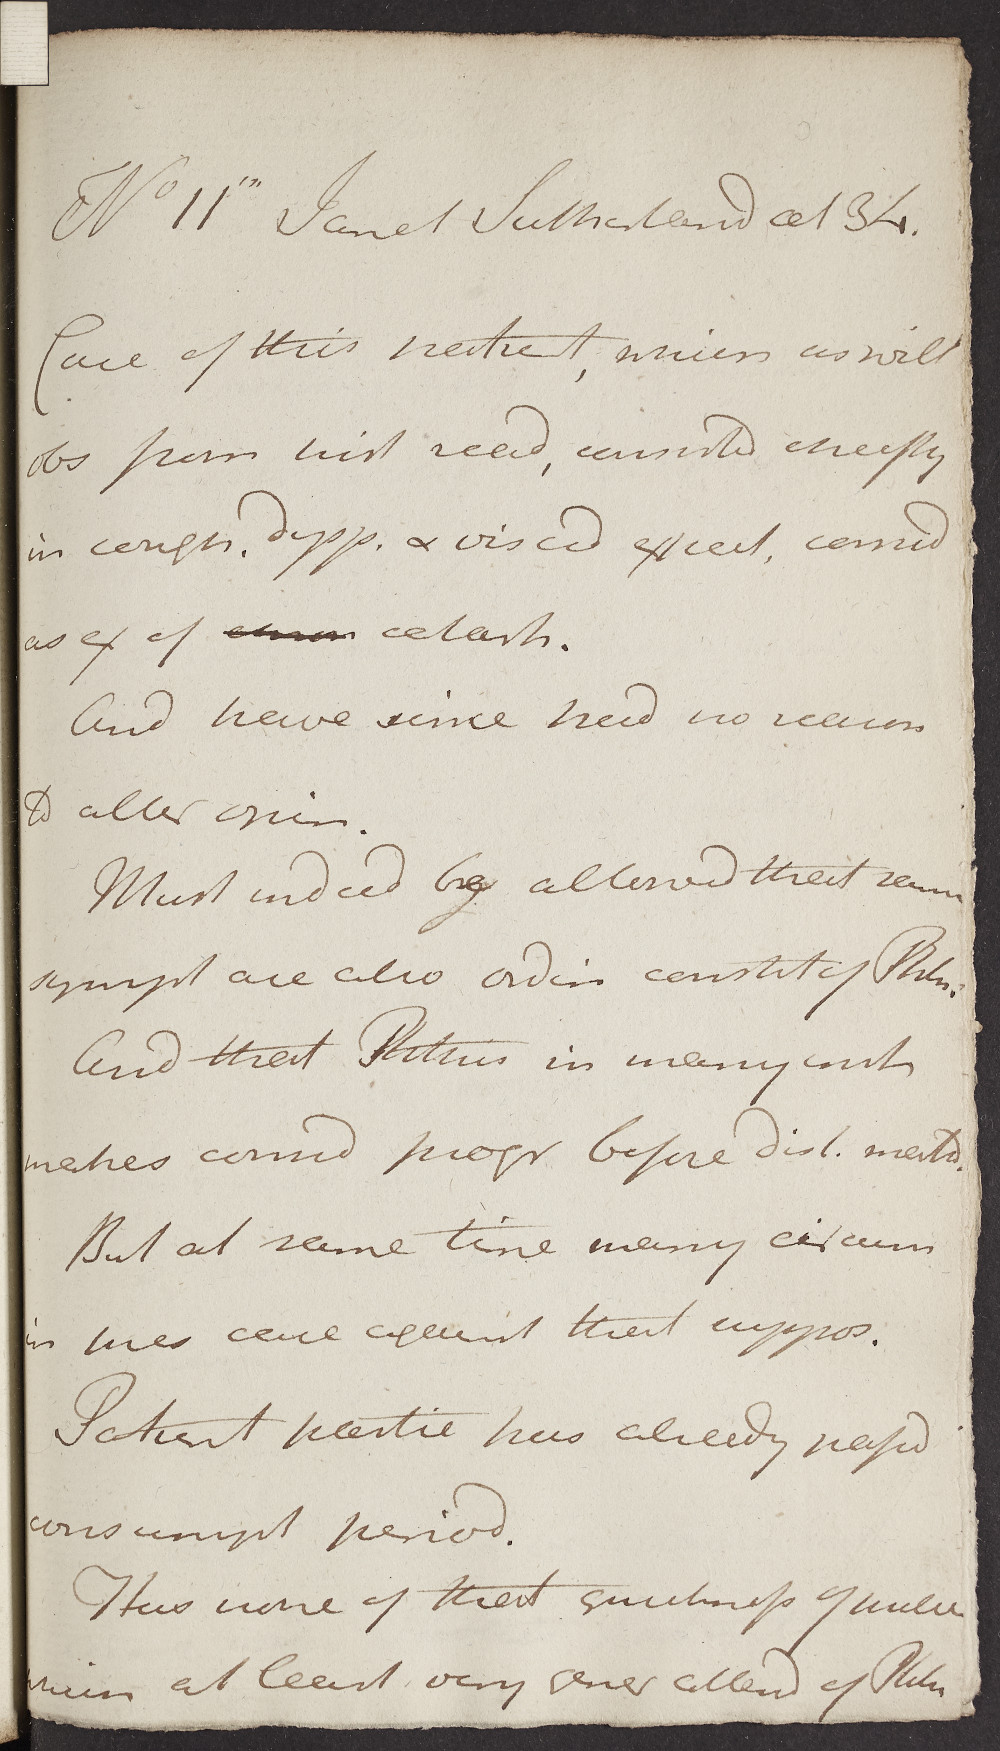 No 11'" Janet Sutherland aet 34.
Case of this patient, which as will
obs from hist read, consisted cheefly
in cough. dysp. & viscid expect, consid
as ex of catarh.
And have since had no reason
to alter opin.
Must indeed be allowed that same
sympt are also ordin constit of Phth.
And that Phthis in many inst
makes consid progr before dist. markd.
But at same time many circum
in pres case against that suppos.
Patient partic has already passd
consumpt period.
Has none of that quickness of pulse
which at least very gener attend of Phth